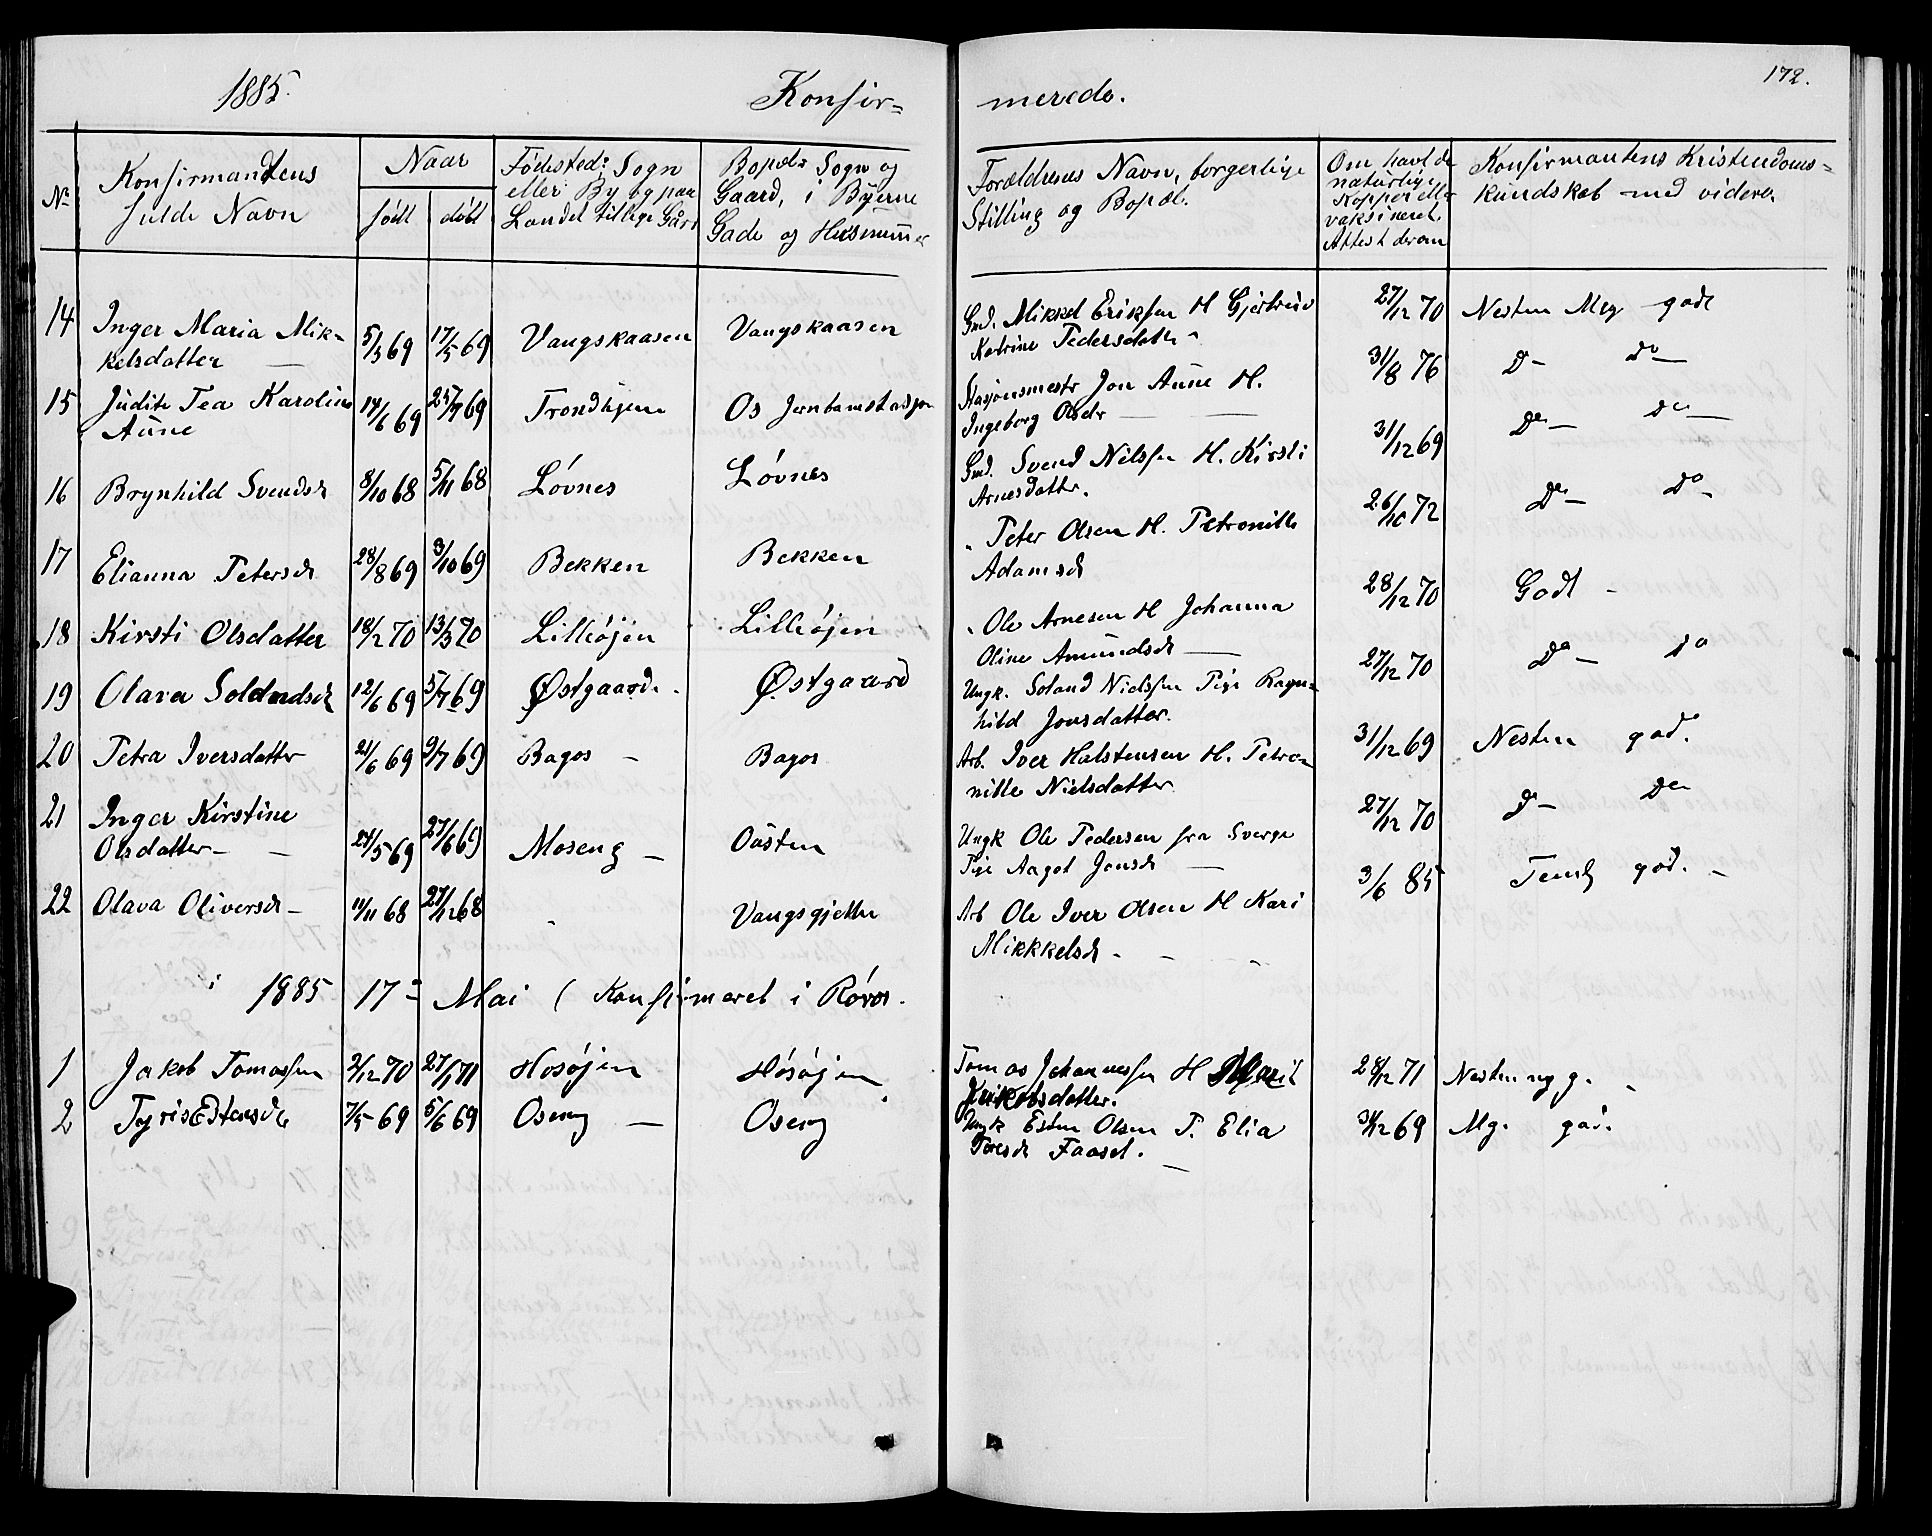 1885. Konfir=
merede. 172.
No Konfirmandtens fulde Navn Naar født døbt Fødested: Sogn eller By og paa Landet tillige Gård Bopæl: Sogn og Gaard, i Byerne Gade og Husnummer
Forældrenes Navn, borgerlige Stilling og Bopæl. Om havt de naturlige Kopper eller vaksineret, Attest derom Konfirmantens Kristendoms= kundskab med videre.
14 Inger Maria Mik- 5/3 69 17/5 69 Vangskaasen Vangskaasen Gmd. Mikkel Eriksen H Gjertrud 27/12 70 Nesten Meg godt
kelsdatter — Katrine Pedersdatter
15 Judite Tea Karoline 14/6 69 25/7 69 Trondhjem Os Jernbanestasjon Stasjonsmestr Jon Aune H. 31/8 76 D– do
Aune Ingeborg Olsdr —
16 Brynhild Svendsd 8/10 68 5/11 68 Løvnes Løvnes Gmd. Svend Nilssen H. Kirsti 31/12 69 Do– Do–
Arnesdatter.
17 Elianna Petersd 28/8 69 3/10 69 Bekken Bekken " Peter Olsen H. Petronille 26/10 72 Do– Do–
Adamsd
18 Kirsti Olsdatter 18/2 70 13/3 70 Lilleøjen Lilleøjen " Ole Arnesen H Johanna 28/12 70 Godt –
Oline Amundsd —
19 Olava Soldndsd 12/6 69 5/7 69 Østgaard. Østgaard Ungk. Soland Nielssen Pige Ragn= 27/12 70 Do– Do
hild Jonsdatter.
20 Petra Iversdatter 21/6 69 9/7 69 Bagos – Bagos Arb. Iver Halstensen H. Petro= 31/12 69 Nesten god.
nille Nielsdatter
21 Inger Kirstine 24/5 69 27/6 69 Moseng – Oústen Ungk Ole Pedersen fra Sverge 27/12 70 D– Do
Olsdatter – Pige Aagot Jonsd —
22 Olava Oliversd – 11/11 68 27/12 68 " Vangsgjelten Arb Ole Iver Olsen H Kari 3/6 85 Temlg god. –
Mikkkelsd –
i 1885 17= Mai ( Konfirmeret i Røros.
1 Jakob Tomassen 2/12 70 27/1 71 Hosøjen Høsøjen Tomas Johannessen H Marit 28/12 71 Nesten mg g.
Jakobsdatter.
2 Tyris Estensd 7/5 69 5/6 69 Oseng — Oseng Ungk Esten Olsen P. Elia 31/12 69 Mg. god.
Toresd Faaset.